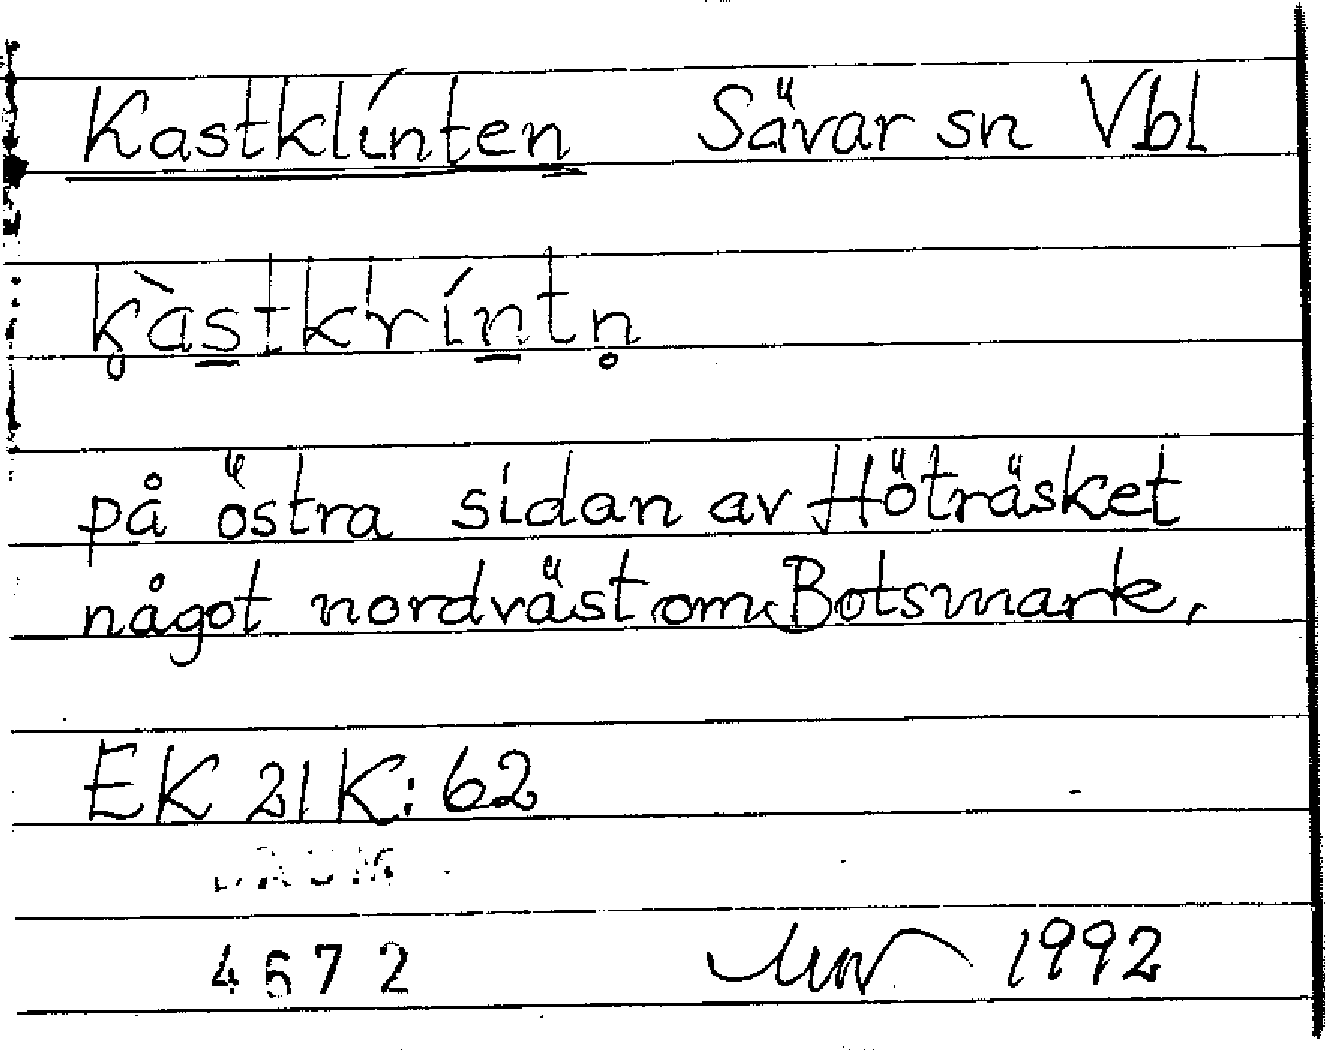 Kastklínten Sävar sn Vbl
k̥às̲tkríṉtn̥
på östra sidan av Höträsket
något nordväst om Botsmark.
EK 21K:62
DAUM
4672 1992